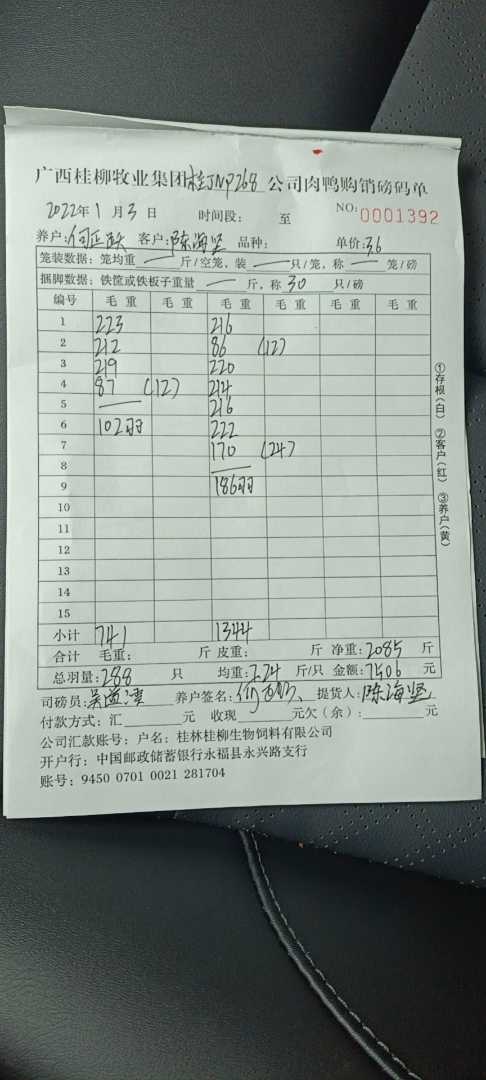 广西桂柳牧业集团桂JNP268公司肉鸭购销磅码单
2022年1月3日 时间段: 至 NO:0001392
养户: 客户:陈海坚 品种: 单价:3.6
笼装数据:笼均重 — 斤/空笼,装 — 只/笼,称 — 笼/磅
捆脚数据:铁筐或铁板子重量 — 斤,称 30 只/磅
编号 毛重 毛重 毛重 毛重 毛重 毛重
1 223 216
2 212 86 (12)
3 219 220
4 87 (12) 214
5 — 216
6 102羽 222
7 170 (24)
8 —
9 186羽
10
11
12
13
14
15
小计 741 1344
合计 毛重: 斤 皮重: 斤 净重:2085 斤
总羽量:288 只 均重:7.24 斤/只 金额:7506 元
司磅员: 养户签名: 提货人:陈海坚
付款方式:汇 元 收现 元欠(余): 元
公司汇款账号:户名:桂林桂柳生物饲料有限公司
开户行:中国邮政储蓄银行永福县永兴路支行
账号:9450 0701 0021 281704
①存根(白) ②客户(红) ③养户(黄)